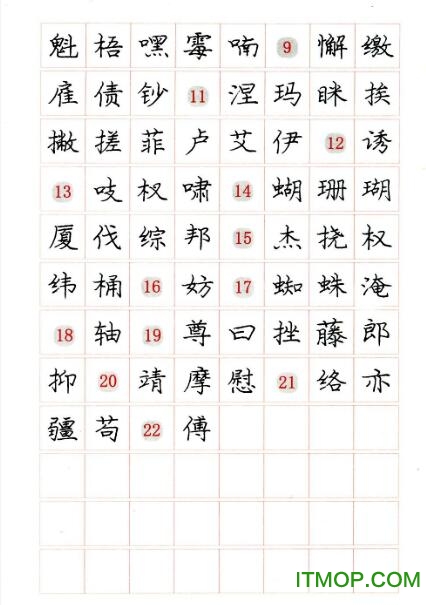 魁 梧 嘿 霉 喃 9 懈 缴
雇 债 钞 11 涅 玛 眯 挨
撇 搓 菲 卢 艾 伊 12 诱
13 吱 杈 啸 14 蝴 珊 瑚
厦 伐 综 邦 15 杰 挠 权
纬 桶 16 妨 17 蜘 蛛 淹
18 轴 19 尊 曰 挫 藤 郎
抑 20 靖 摩 慰 21 络 亦
疆 苟 22 傅
ITMOP.com